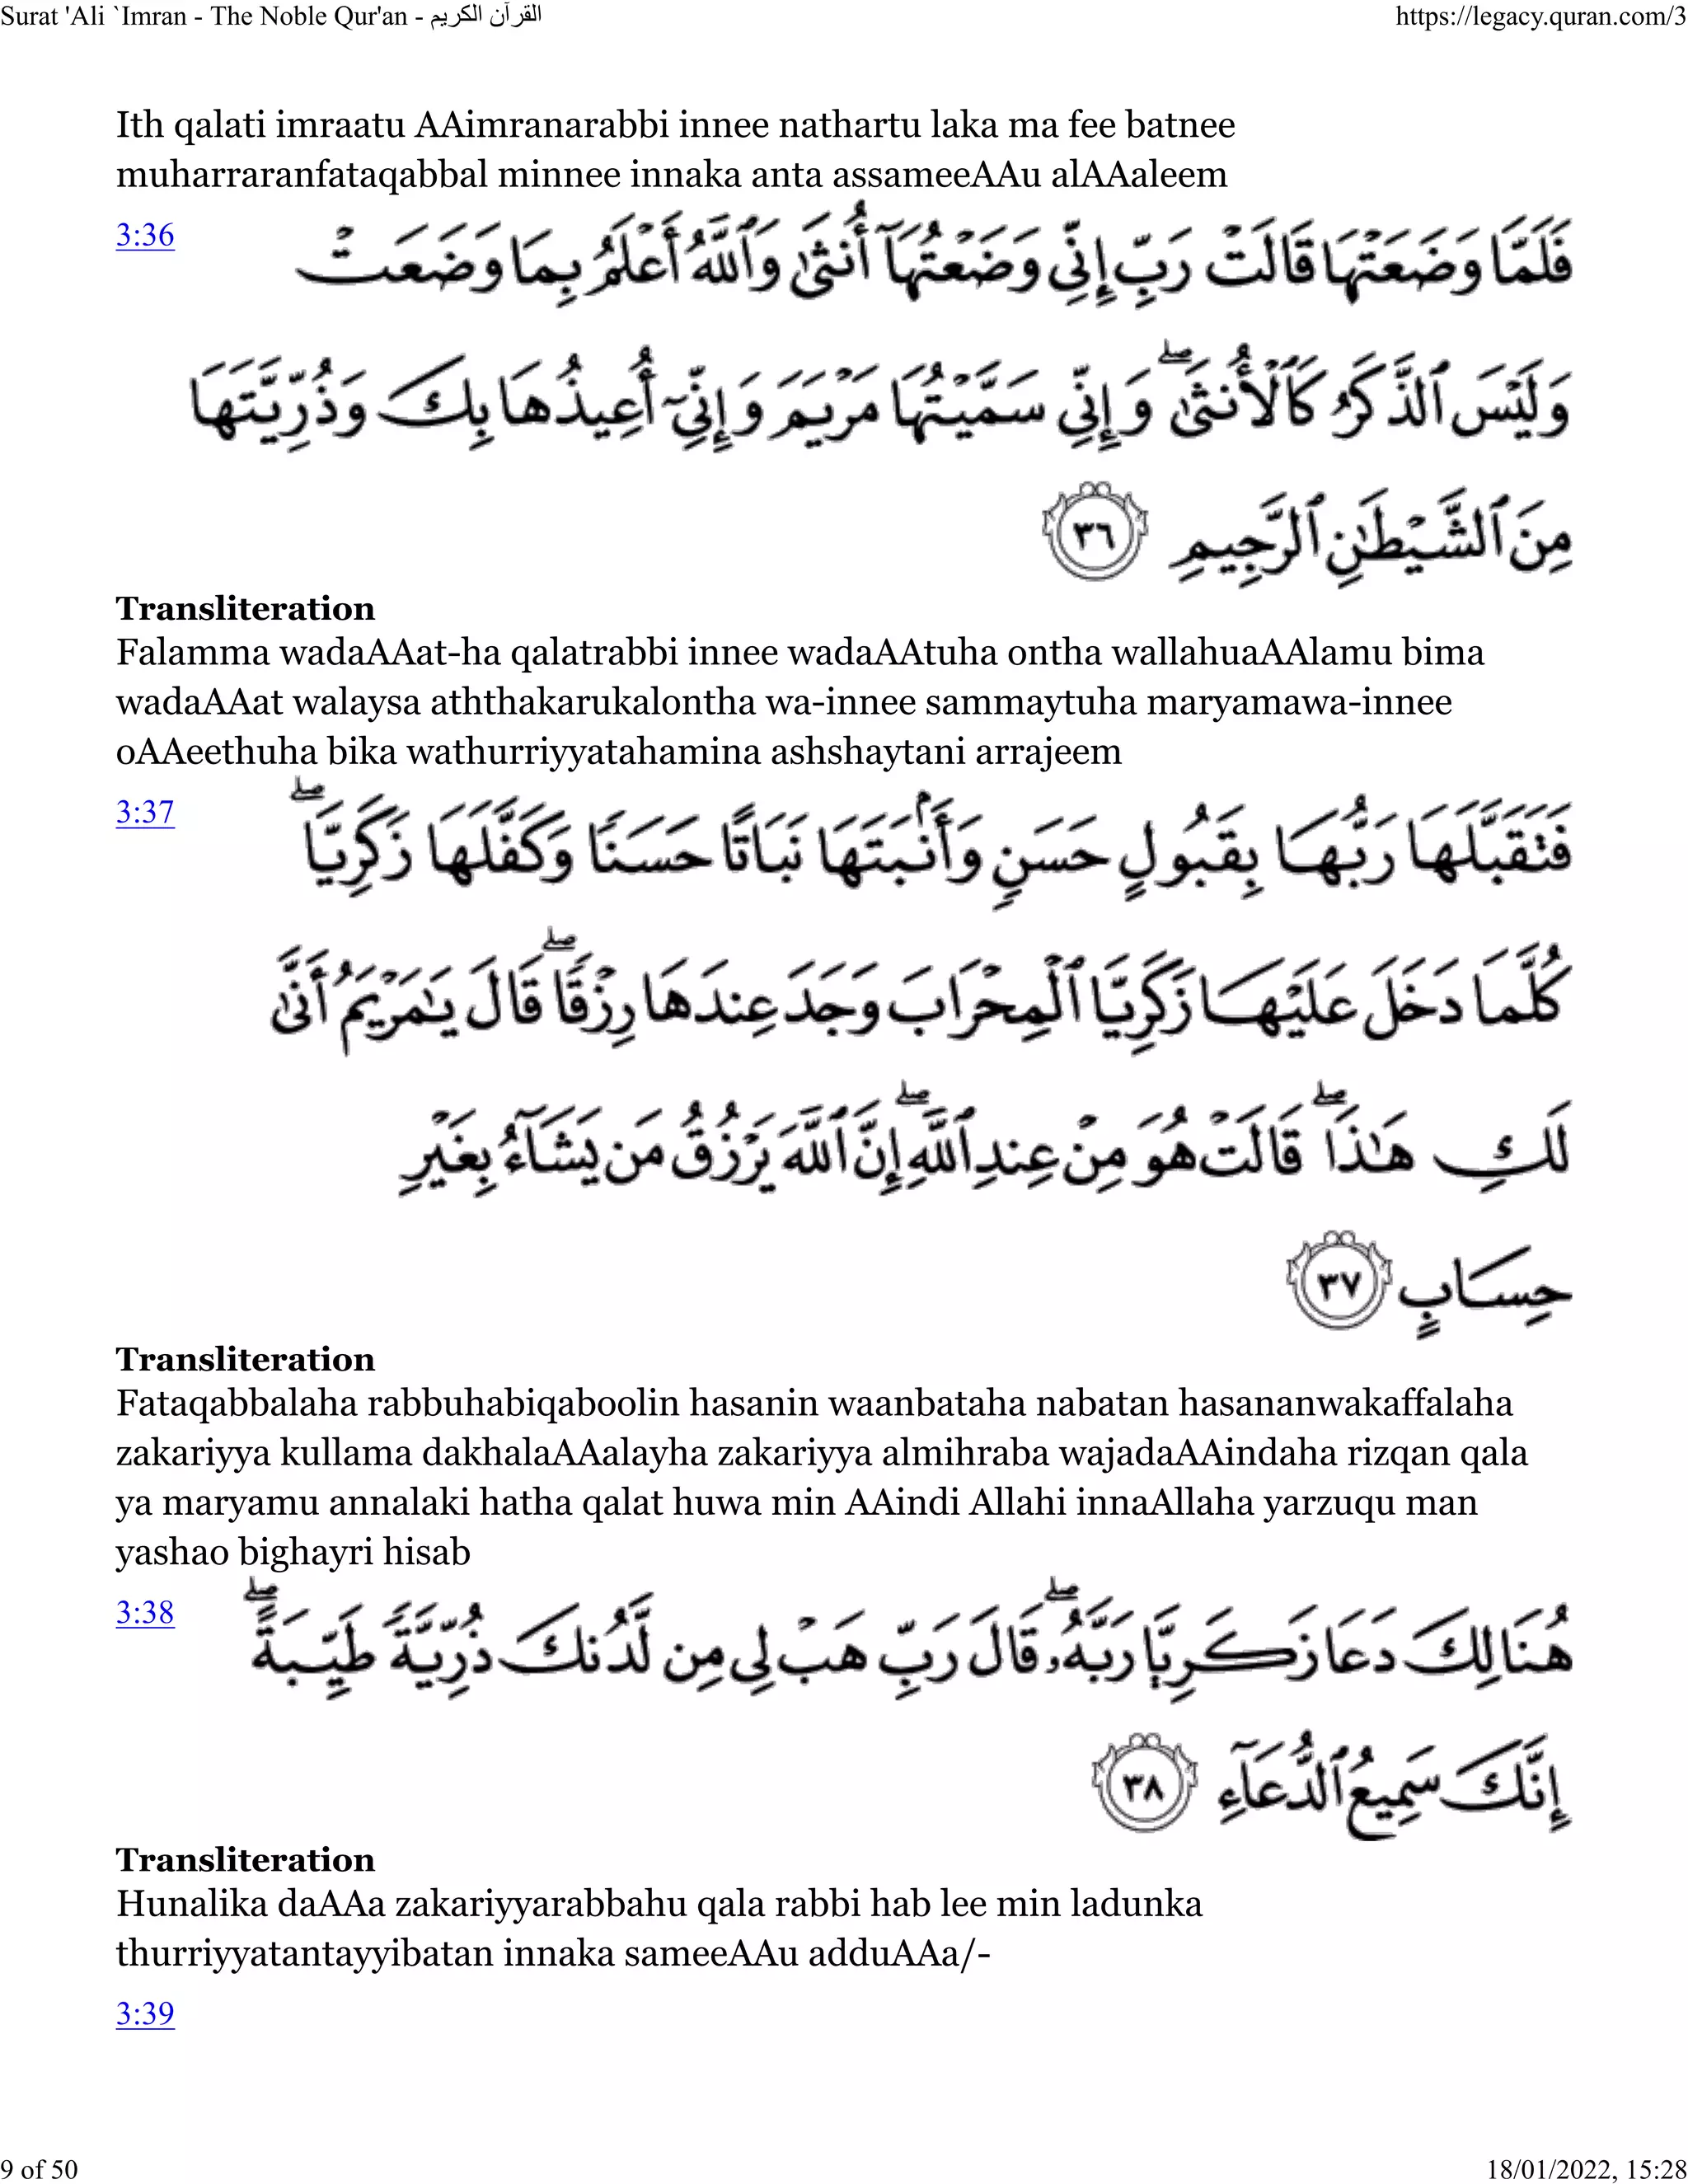 Surat 'Ali `Imran - The Noble Qur'an - القرآن الكريم
https://legacy.quran.com/3
Ith qalati imraatu AAimranarabbi innee nathartu laka ma fee batnee
muharraranfataqabbal minnee innaka anta assameeAAu alAAaleem
3:36
فَلَمَّا وَضَعَتْهَا قَالَتْ رَبِّ إِنِّى وَضَعْتُهَآ أُنثَىٰ وَٱللَّهُ أَعْلَمُ بِمَا وَضَعَتْ
وَلَيْسَ ٱلذَّكَرُ كَٱلْأُنثَىٰ ۖ وَإِنِّى سَمَّيْتُهَا مَرْيَمَ وَإِنِّىٓ أُعِيذُهَا بِكَ وَذُرِّيَّتَهَا
مِنَ ٱلشَّيْطَٰنِ ٱلرَّجِيمِ ٣٦
Transliteration
Falamma wadaAAat-ha qalatrabbi innee wadaAAtuha ontha wallahuaAAlamu bima
wadaAAat walaysa aththakarukalontha wa-innee sammaytuha maryamawa-innee
oAAeethuha bika wathurriyyatahamina ashshaytani arrajeem
3:37
فَتَقَبَّلَهَا رَبُّهَا بِقَبُولٍ حَسَنٍ وَأَنۢبَتَهَا نَبَاتًا حَسَنًا وَكَفَّلَهَا زَكَرِيَّا ۖ
كُلَّمَا دَخَلَ عَلَيْهَا زَكَرِيَّا ٱلْمِحْرَابَ وَجَدَ عِندَهَا رِزْقًا ۖ قَالَ يَٰمَرْيَمُ أَنَّىٰ
لَكِ هَٰذَا ۖ قَالَتْ هُوَ مِنْ عِندِ ٱللَّهِ ۖ إِنَّ ٱللَّهَ يَرْزُقُ مَن يَشَآءُ بِغَيْرِ
حِسَابٍ ٣٧
Transliteration
Fataqabbalaha rabbuhabiqaboolin hasanin waanbataha nabatan hasananwakaffalaha
zakariyya kullama dakhalaAAalayha zakariyya almihraba wajadaAAindaha rizqan qala
ya maryamu annalaki hatha qalat huwa min AAindi Allahi innaAllaha yarzuqu man
yashao bighayri hisab
3:38
هُنَالِكَ دَعَا زَكَرِيَّا رَبَّهُۥ ۖ قَالَ رَبِّ هَبْ لِى مِن لَّدُنكَ ذُرِّيَّةً طَيِّبَةً ۖ
إِنَّكَ سَمِيعُ ٱلدُّعَآءِ ٣٨
Transliteration
Hunalika daAAa zakariyyarabbahu qala rabbi hab lee min ladunka
thurriyyatantayyibatan innaka sameeAAu adduAAa/-
3:39
9 of 50
18/01/2022, 15:28